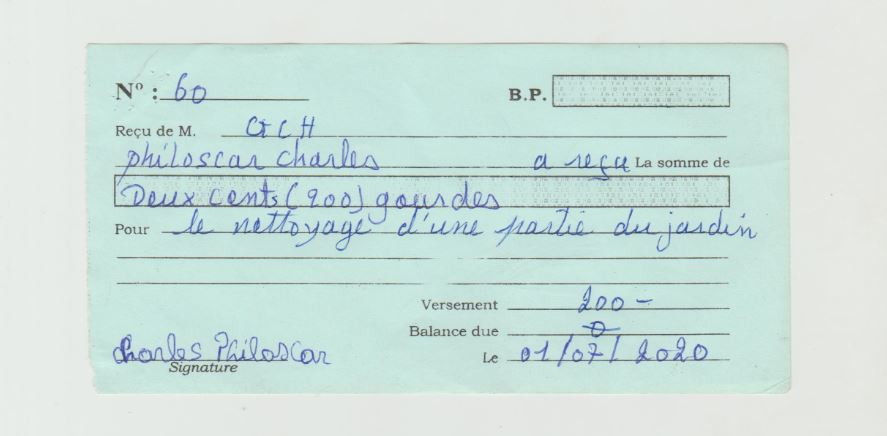 Nº : 60 B.P.
Reçu de M. GCH
philoscar charles a reçu La somme de
Deux cents (200) gourdes
Pour le nettoyage d'une partie du jardin
Versement 200 -
Balance due 0
charles Philoscar Le 01/07/2020
Signature